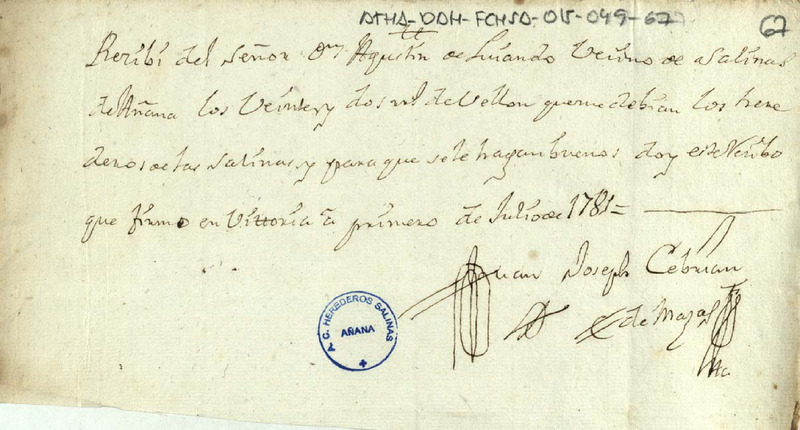 ATHA-DDH-FCHSA-015-049-67
67
Recibi del señor Dn Agustin de Luando Vecino de Salinas
de Añana los Veinte y dos rs de Vellon que me debian los here
deros de las Salinas, y para que se le hagan buenos doy este Recibo
que firmo en Vittoria a primero de Julio de 1781=
Juan Joseph Cebrian
de Mazas
A. C. HEREDEROS SALINAS
AÑANA